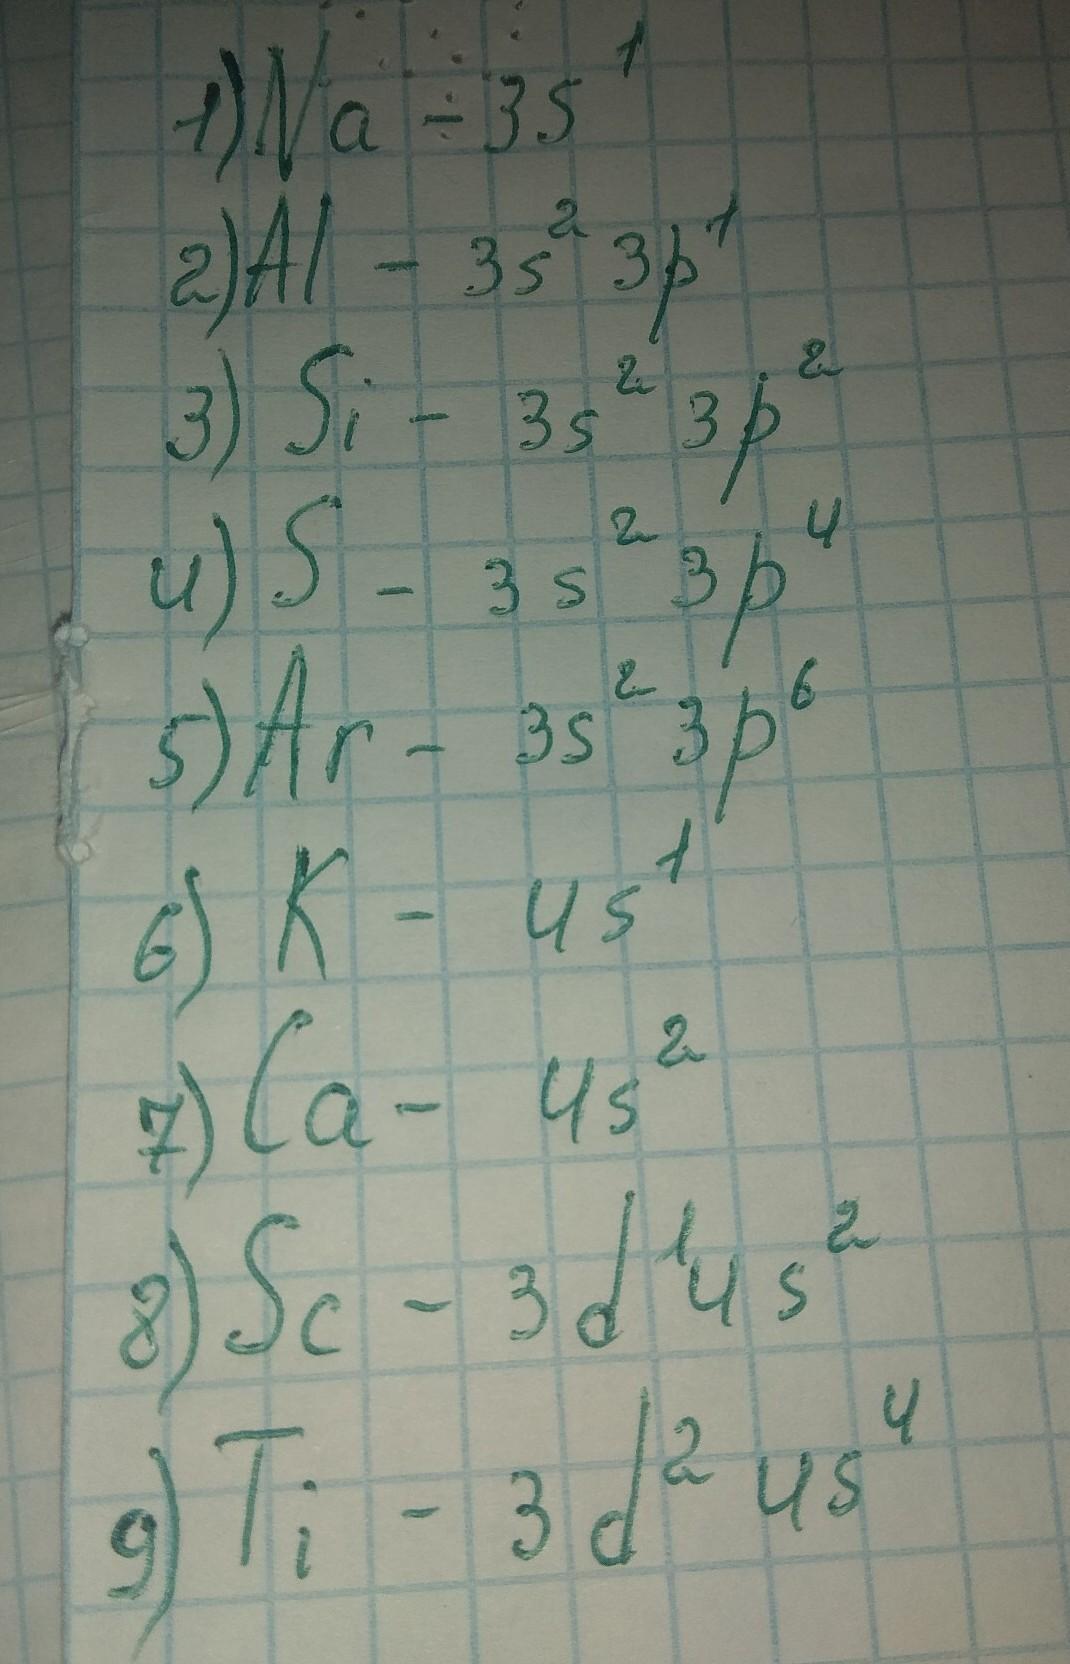 1) Na - 3s¹
2) Al - 3s² 3p¹
3) Si - 3s² 3p²
4) S - 3s² 3p⁴
5) Ar - 3s² 3p⁶
6) K - 4s¹
7) Ca - 4s²
8) Sc - 3d¹ 4s²
9) Ti - 3d² 4s⁴